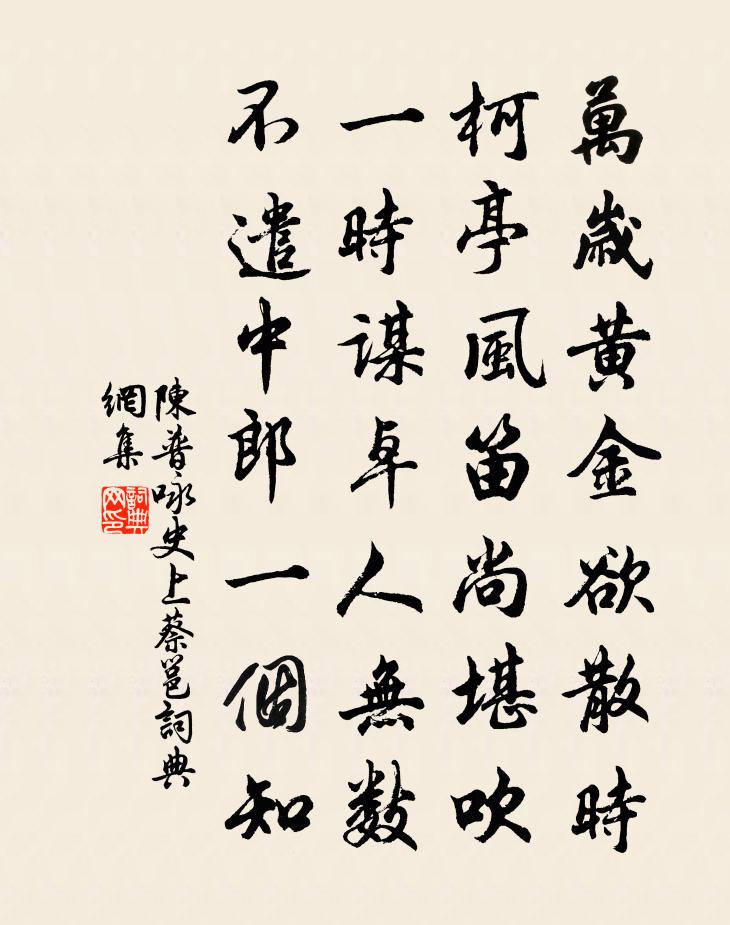 萬歲黃金欲散時
柯亭風笛尚堪吹
一時謀卓人無數
不遣中郎一個知
陳普咏史上蔡邕詞典
網集
詞典
网印